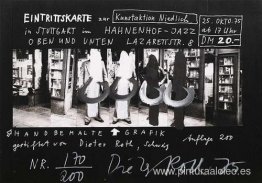 EINTRITTSKARTE zur Kunstaktion Niedlich
in STUTTGART im HAHNENHOF-JAZZ
OBEN UND UNTEN LAZARETTSTR. 8
25. OKT. 75
ab 17 UHR
DM 20.-
HANDBEMALTE GRAFIK
gestiftet von Dieter Roth,
Auflage 200
NR. 170/200 Dieter Roth 75
www.pinturaaloleo.es